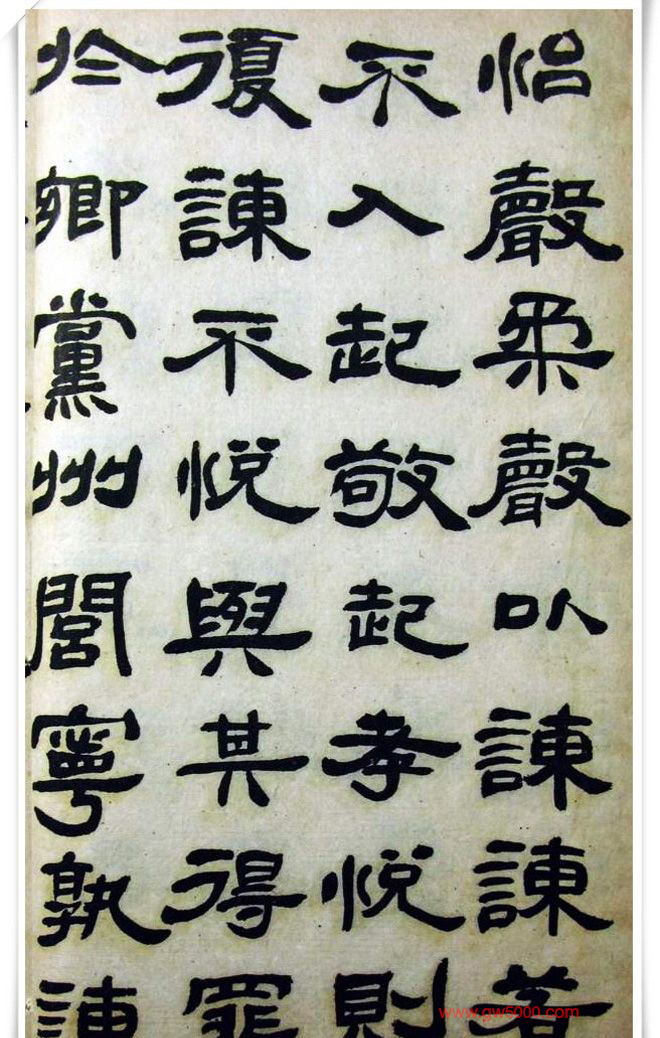 怡聲柔聲以諫諫若
不入起敬起孝悅則
復諫不悅與其得罪
於鄉黨州閭寧孰諫
www.gw5000.com